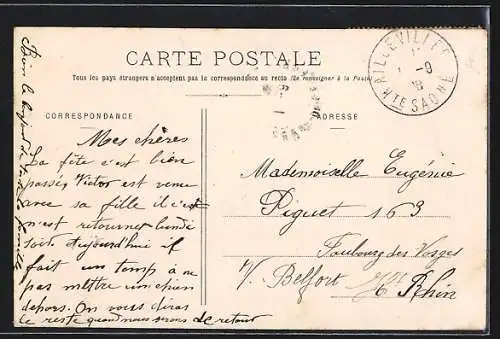 CARTE POSTALE
Tous les pays étrangers n'acceptent pas la correspondance au recto (Se renseigner à la Poste)
CORRESPONDANCE
ADRESSE
AILLEVILLERS
HTE SAONE
Mes chères
La fête c'est bien
passée, Victor est venu
avec sa fille il c'est
n'est retourner lundi
soir. Aujourd'hui il
fait un temp à ne
pas mettre un chien
dehors. On vous diras
le reste quand nous serons de retour
Bien le bonjour de toute la famille
Mademoiselle Eugénie
Piguet 163
Faubourg des Vosges
V. Belfort Ht Rhin